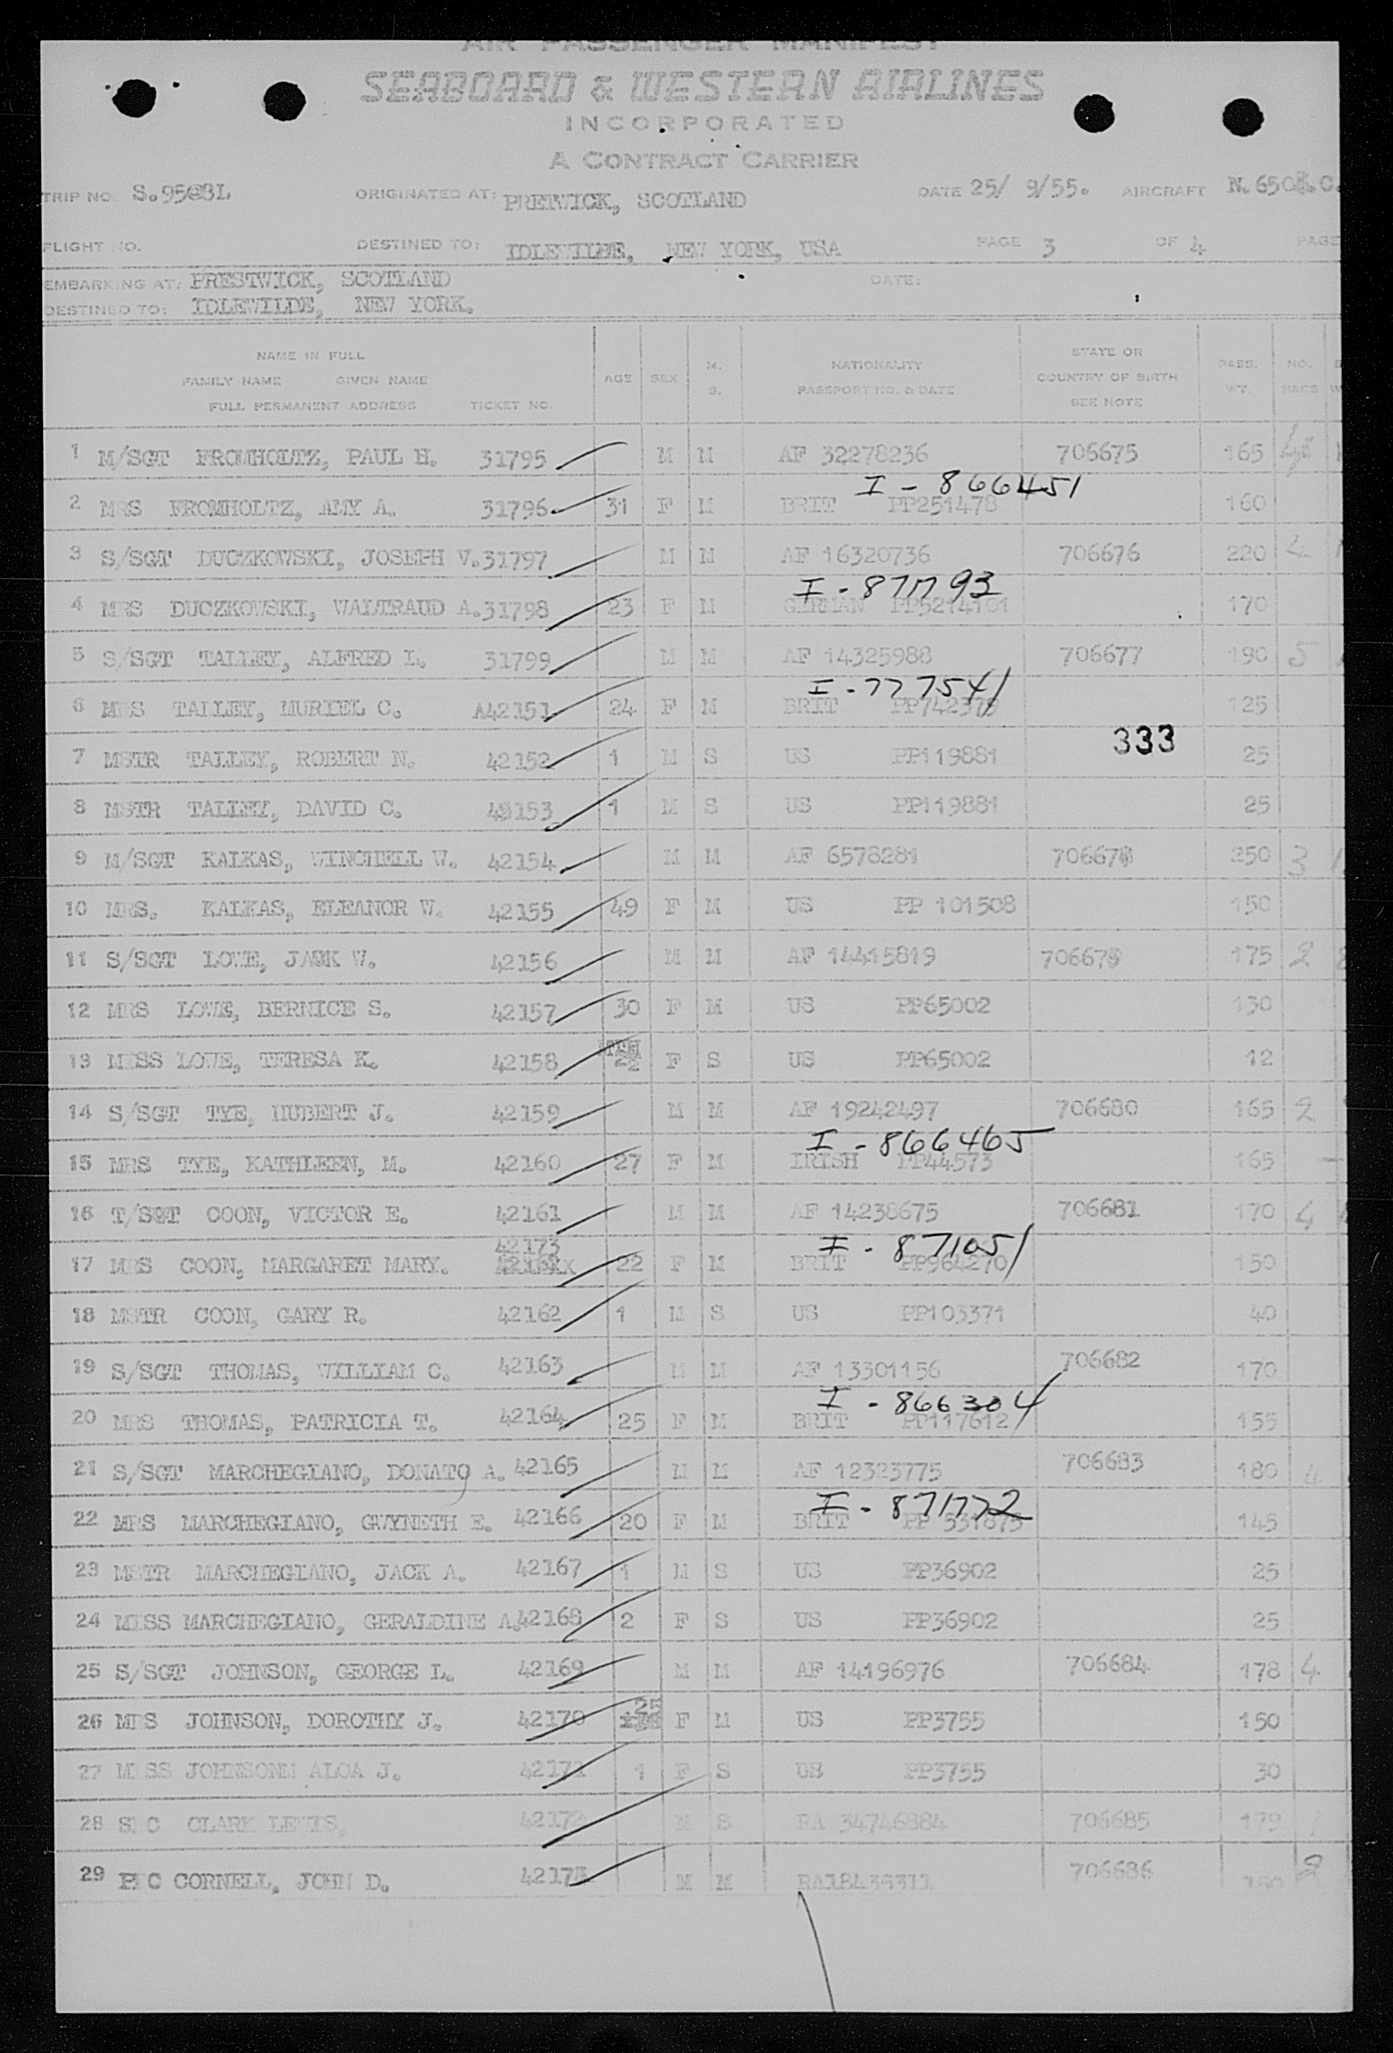 AIR PASSENGER MANIFEST
SEABOARD & WESTERN AIRLINES
INCORPORATED
A CONTRACT CARRIER
TRIP NO. ORIGINATED AT: PRETWICK, SCOTLAND DATE 25/ 9/55. AIRCRAFT
FLIGHT NO. DESTINED TO: NEW YORK, USA PAGE 3 OF 4 PAGE
EMBARKING AT: PRESTWICK, SCOTLAND DATE:
DESTINED TO: IDLEWILDE, NEW YORK.
NAME IN FULL STATE OR
FAMILY NAME GIVEN NAME AGE SEX M. NATIONALITY COUNTRY OF BIRTH PASS. NO.
FULL PERMANENT ADDRESS TICKET NO. S. PASSPORT NO. & DATE SEE NOTE WT. BAGS
1 M/SGT FROMHOLTZ, PAUL H. 31795 M M AF 32278236 706675 165
I - 866451
2 MRS FROMHOLTZ, AMY A. 31796 31 F M BRIT PP251478 160
3 S/SGT DUCZKOWSKI, JOSEPH V. 31797 M M AF 16320736 706676 220
I - 871793
4 MRS DUCZKOWSKI, WALTRAUD A. 31798 23 F M GERMAN 170
5 S/SGT TALLEY, ALFRED L. 31799 M M AF 14325988 706677 190 5
I - 777541
6 MRS TALLEY, MURIEL C. A42151 24 F M BRIT 125
333
7 MSTR TALLEY, ROBERT N. 42152 1 M S US PP119881 25
8 MSTR TALLEY, DAVID C. 42153 1 M S US PP119881 25
9 M/SGT KALKAS, WINCHELL W. 42154 M M AF 6578281 706678 250 3
10 MRS. KALKAS, ELEANOR W. 42155 49 F M US PP 101508 150
11 S/SGT LOWE, JACK W. 42156 M M AF 14415819 706679 175 2
12 MRS LOWE, BERNICE S. 42157 30 F M US PP65002 130
13 MISS LOWE, TERESA K. 42158 F S US PP65002 12
14 S/SGT TYE, HUBERT J. 42159 M M AF 19242497 706680 165 2
I - 866465
15 MRS TYE, KATHLEEN, M. 42160 27 F M IRISH PP44573 165
16 T/SGT COON, VICTOR E. 42161 M M AF 14238675 706681 170 4
42173 I - 871051
17 MRS COON, MARGARET MARY. 22 F M BRIT PP964270 150
18 MSTR COON, GARY R. 42162 1 M S US PP103371 40
19 S/SGT THOMAS, WILLIAM C. 42163 M M AF 13301156 706682 170
I - 866304
20 MRS THOMAS, PATRICIA T. 42164 25 F M BRIT PP117612 155
21 S/SGT MARCHEGIANO, DONATO A. 42165 M M AF 12323775 706683 180 4
I - 871772
22 MRS MARCHEGIANO, GWYNETH E. 42166 20 F M BRIT 145
23 MSTR MARCHEGIANO, JACK A. 42167 1 M S US PP36902 25
24 MISS MARCHEGIANO, GERALDINE A. 42168 2 F S US PP36902 25
25 S/SGT JOHNSON, GEORGE L. 42169 M M AF 14196976 706684 178 4
26 MRS JOHNSON, DOROTHY J. 42170 25 F M US PP3755 150
27 MISS JOHNSONN ALOA J. 42171 1 F S US PP3755 30
28 CLARK 42172 M S RA 34746884 706685 179
29 PFC CORNELL, JOHN D. M M 706686 2